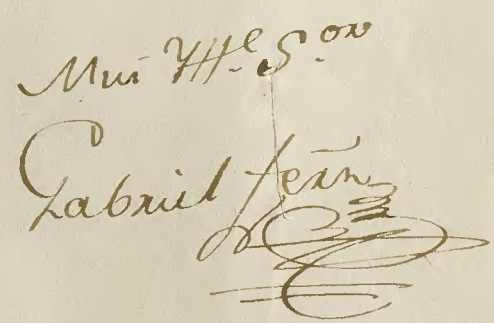 Mui Ylle. S.or
Gabriel Fern̄z